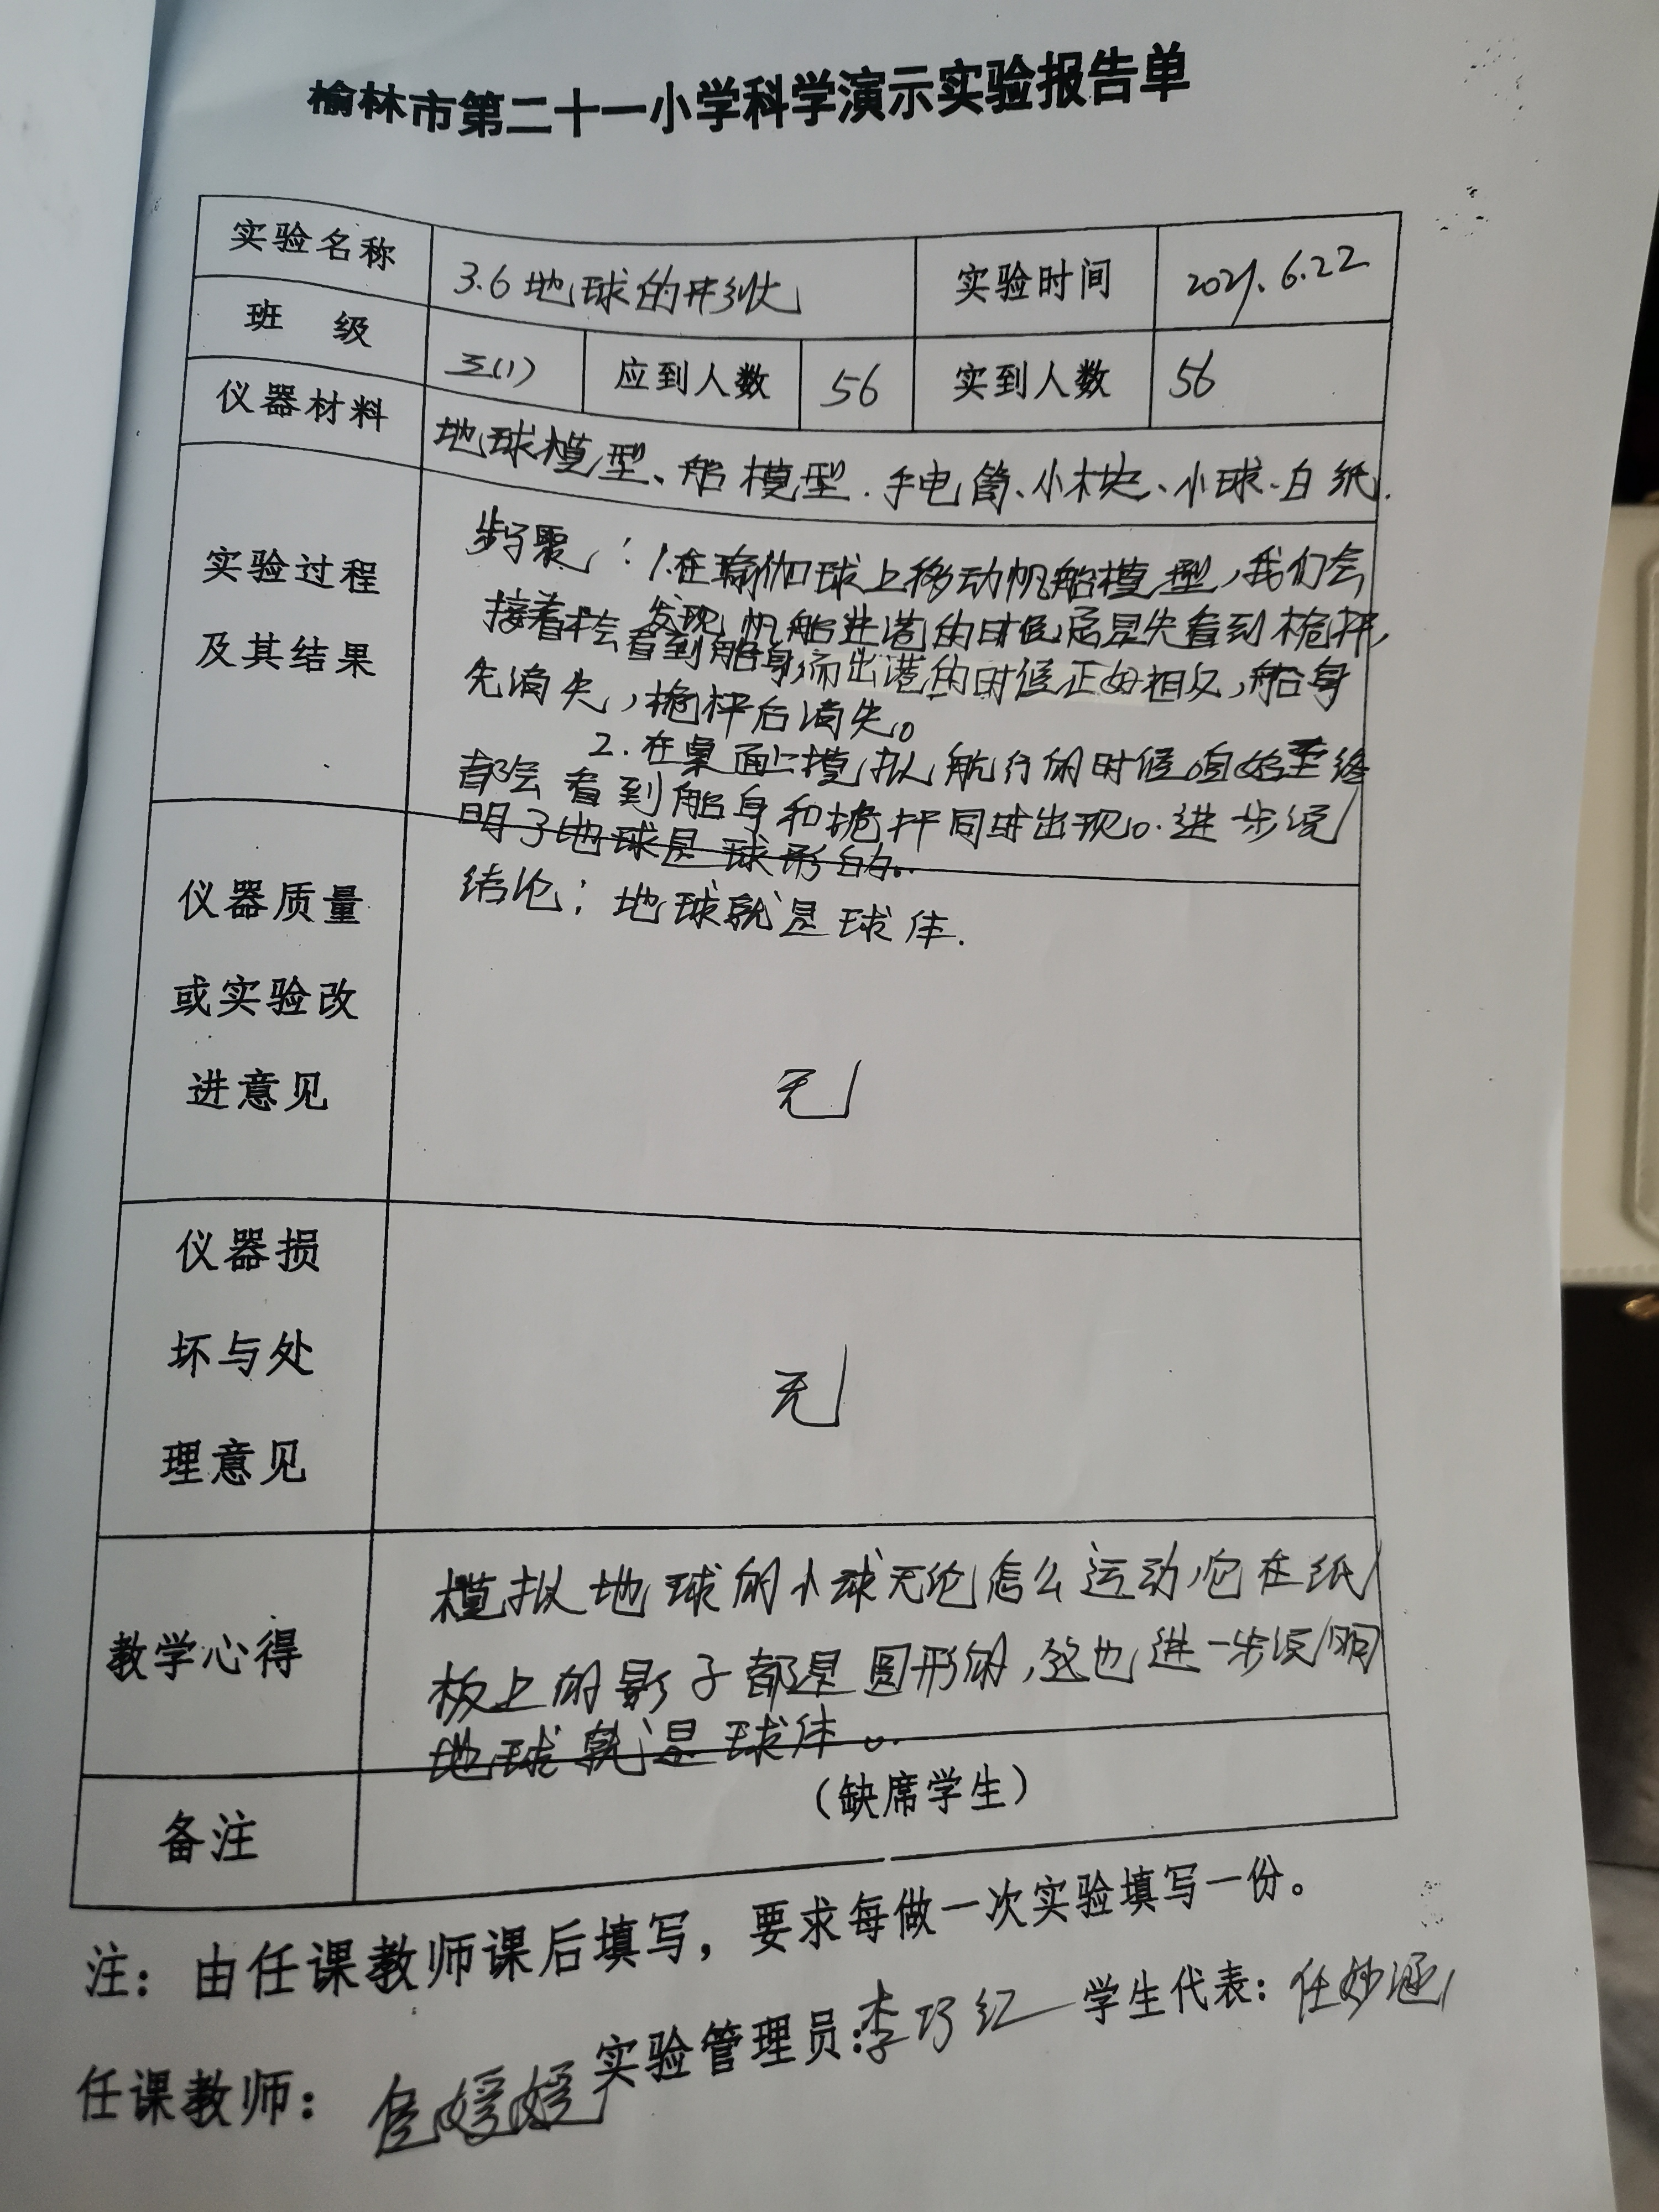 榆林市第二十一小学科学演示实验报告单
实验名称 3.6地球的形状 实验时间 2021.6.22
班 级 三(1) 应到人数 56 实到人数 56
仪器材料 地球模型、船模型.手电筒、小木块、小球、白纸.
实验过程
及其结果
步骤:1.在瑜伽球上移动帆船模型,我们会
发现帆船进港的时候,总是先看到桅杆,
接着才会看到船身,而出港的时候正好相反,船身
先消失,桅杆后消失。
2.在桌面上模拟航行的时候。自始至终
都会看到船身和桅杆同时出现。进步说
明了地球是球形的.
结论:地球就是球体.
仪器质量
或实验改
进意见
无
仪器损
坏与处
理意见
无
教学心得
模拟地球的小球无论怎么运动,它在纸
板上的影子都是圆形的,这也进一步说明
地球就是球体。
备注 (缺席学生)
注:由任课教师课后填写,要求每做一次实验填写一份。
任课教师: 媛媛 实验管理员:李巧红 学生代表:任妙涵